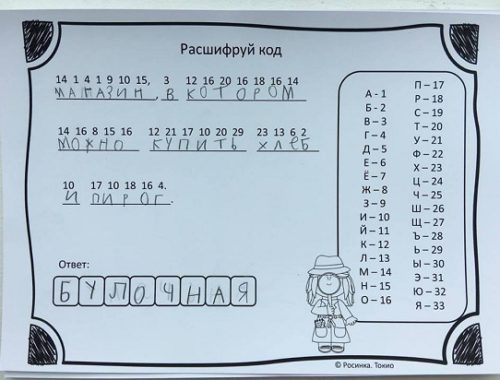 Расшифруй код
14 1 4 1 9 10 15, 3 12 16 20 16 18 16 14
МАГАЗИН, В КОТОРОМ
14 16 8 15 16 12 21 17 10 20 29 23 13 6 2
МОЖНО КУПИТЬ ХЛЕБ
10 17 10 18 16 4.
И ПИРОГ.
Ответ:
БУЛОЧНАЯ
А – 1
Б – 2
В – 3
Г – 4
Д – 5
Е – 6
Ё – 7
Ж – 8
З – 9
И – 10
Й – 11
К – 12
Л – 13
М – 14
Н – 15
О – 16
П – 17
Р – 18
С – 19
Т – 20
У – 21
Ф – 22
Х – 23
Ц – 24
Ч – 25
Ш – 26
Щ – 27
Ъ – 28
Ь – 29
Ы – 30
Э – 31
Ю – 32
Я – 33
© Росинка. Токио